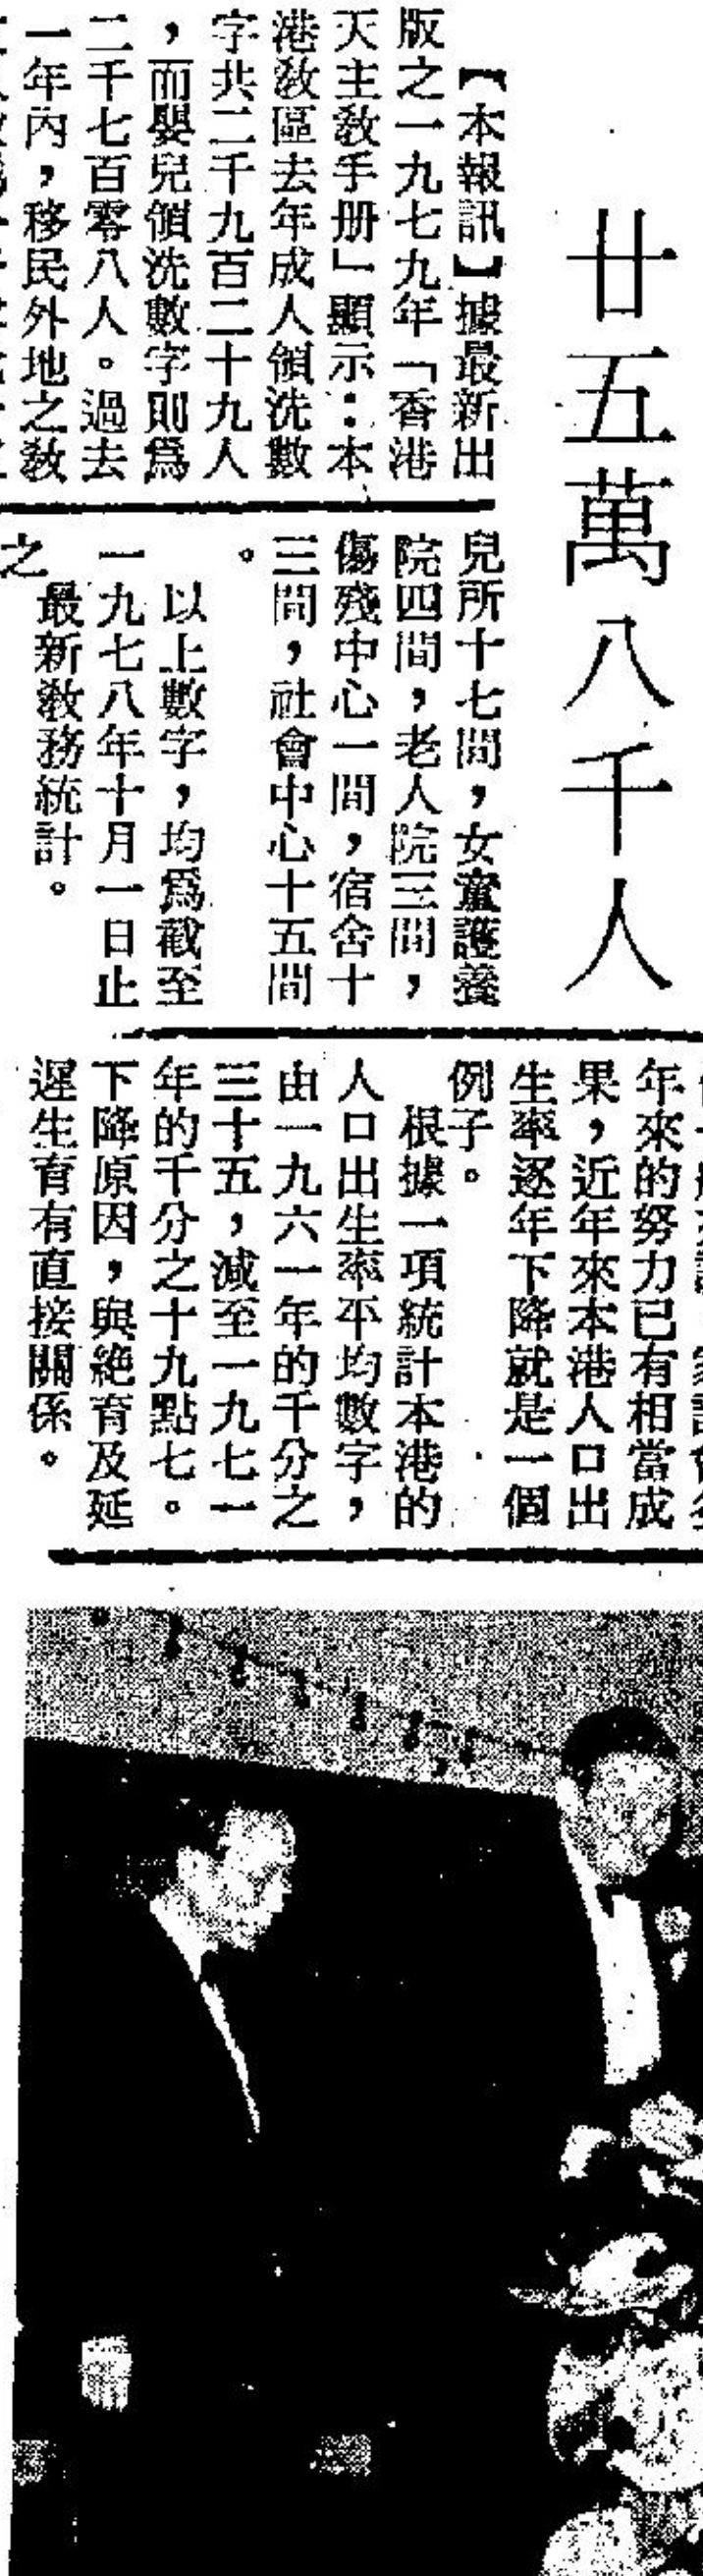 廿五萬八千人
【本報訊】據最新出
版之一九七九年「香港
天主教手册」顯示：本
港教區去年成人領洗數
字共二千九百二十九人
，而嬰兒領洗數字則爲
二千七百零八人。過去
一年內，移民外地之教
兒所十七間，女童護養
院四間，老人院三間，
傷殘中心一間，宿舍十
三間，社會中心十五間
。
以上數字，均爲截至
一九七八年十月一日止
之
最新教務統計。
年來的努力已有相當成
果，近年來本港人口出
生率逐年下降就是一個
例子。
根據一項統計本港的
人口出生率平均數字，
由一九六一年的千分之
三十五，減至一九七一
年的千分之十九點七。
下降原因，與絕育及延
遲生育有直接關係。